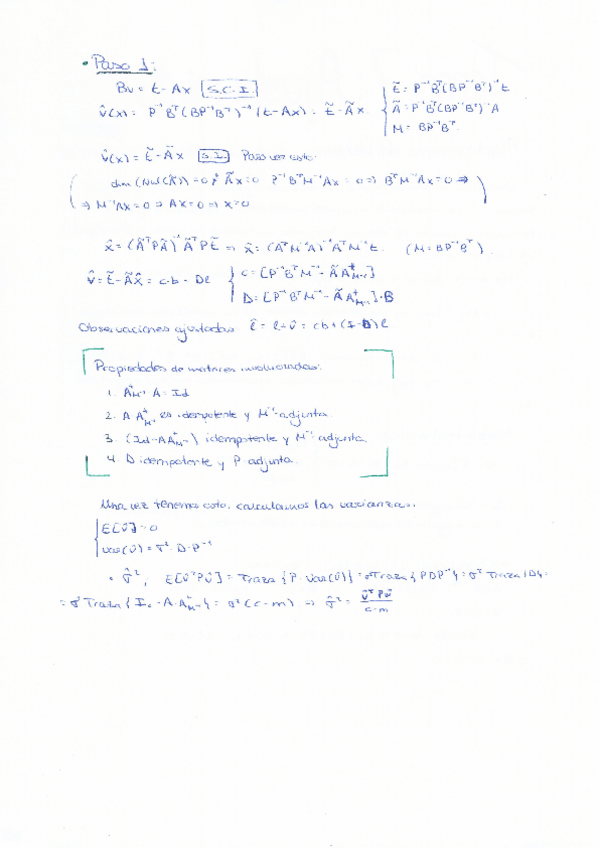 • Paso 1:
Bv = t - Ax [S.C.I.]
v̂(x) = P⁻¹Bᵀ(BP⁻¹Bᵀ)⁻¹(t - Ax) = t̃ - Ãx
t̃ = P⁻¹Bᵀ(BP⁻¹Bᵀ)⁻¹t
Ã = P⁻¹Bᵀ(BP⁻¹Bᵀ)⁻¹A
M = BP⁻¹Bᵀ
v̂(x) = t̃ - Ãx [S.I.] Para ver esto:
dim(Nul(Ã)) = 0; Ãx = 0 P⁻¹BᵀM⁻¹Ax = 0 ⇒ BᵀM⁻¹Ax = 0 ⇒
⇒ M⁻¹Ax = 0 ⇒ Ax = 0 ⇒ x = 0
x̂ = (ÃᵀPÃ)⁻¹ÃᵀPt̃ ⇒ x̂ = (AᵀM⁻¹A)⁻¹AᵀM⁻¹t. (M = BP⁻¹Bᵀ)
v̂ = t̃ - Ãx̂ = c·b - Dl
c = [P⁻¹BᵀM⁻¹ - ÃA⁺M⁻¹]
D = [P⁻¹BᵀM⁻¹ - ÃA⁺M⁻¹]·B
Observaciones ajustadas l̂ = l + v̂ = cb + (I - D)l
Propiedades de matrices involucradas:
1. A⁺M⁻¹ A = Id
2. A A⁺M⁻¹ es idempotente y M⁻¹-adjunta.
3. (Id - AA⁺M⁻¹) idempotente y M⁻¹ adjunta.
4. D idempotente y P adjunta.
Una vez tenemos esto, calculamos las varianzas.
E[v̂] = 0
Var(v̂) = σ²·D·P⁻¹
• σ̂², E[v̂ᵀPv̂] = Traza{P·Var(v̂)} = σ²Traza{PDP⁻¹} = σ² Traza{D} =
= σ² Traza{Ic - A·A⁺M⁻¹} = σ²(c - m) ⇒ σ̂² = v̂ᵀPv̂ / c - m